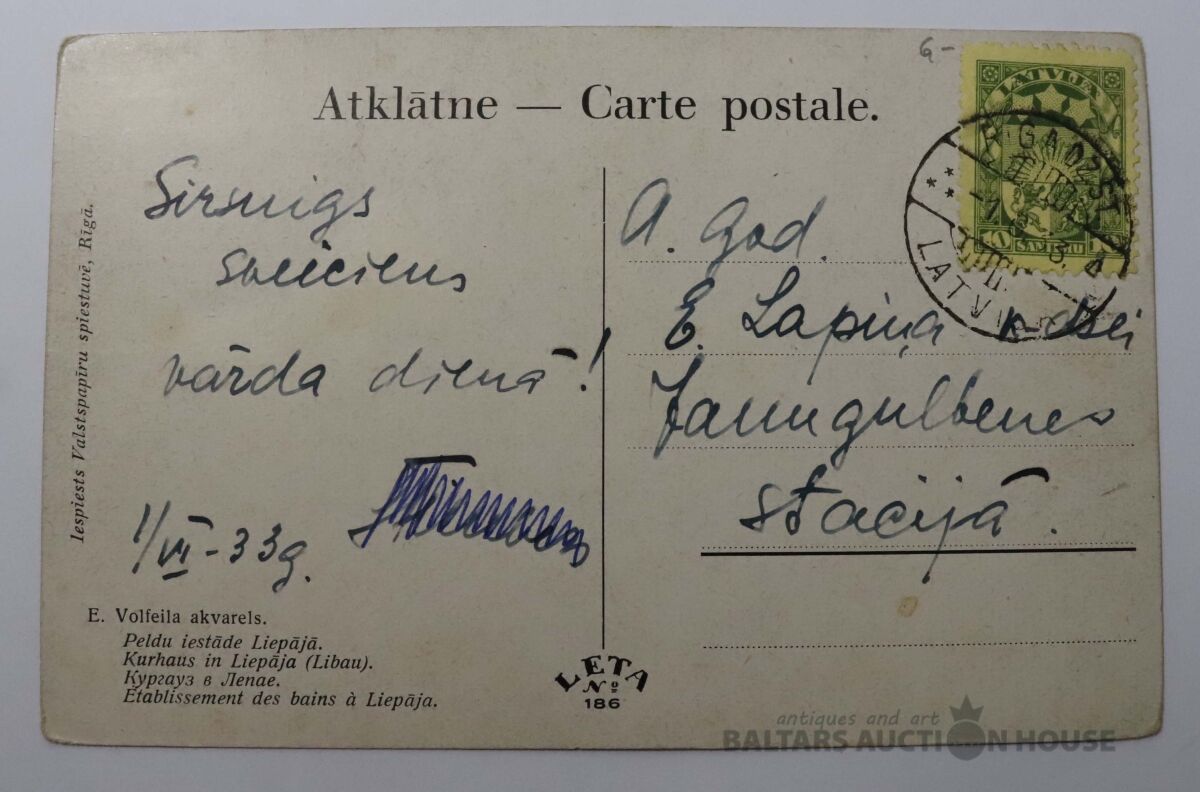 6-
Atklātne — Carte postale.
LATVIJA
10 SANTIMU 10
LATVIJA
Sirsnigs
sveiciens
vārda dienā!
1/VI-33g.
A. god.
E. Lapiņa k-dzei
Jaungulbenes
stacijā.
Iespiests Valstspapīru spiestuvē, Rīgā.
E. Volfeila akvarels.
Peldu iestāde Liepājā.
Kurhaus in Liepāja (Libau).
Кургауз в Лепае.
Établissement des bains à Liepāja.
LETA
No
186
antiques and art
BALTARS AUCTION HOUSE